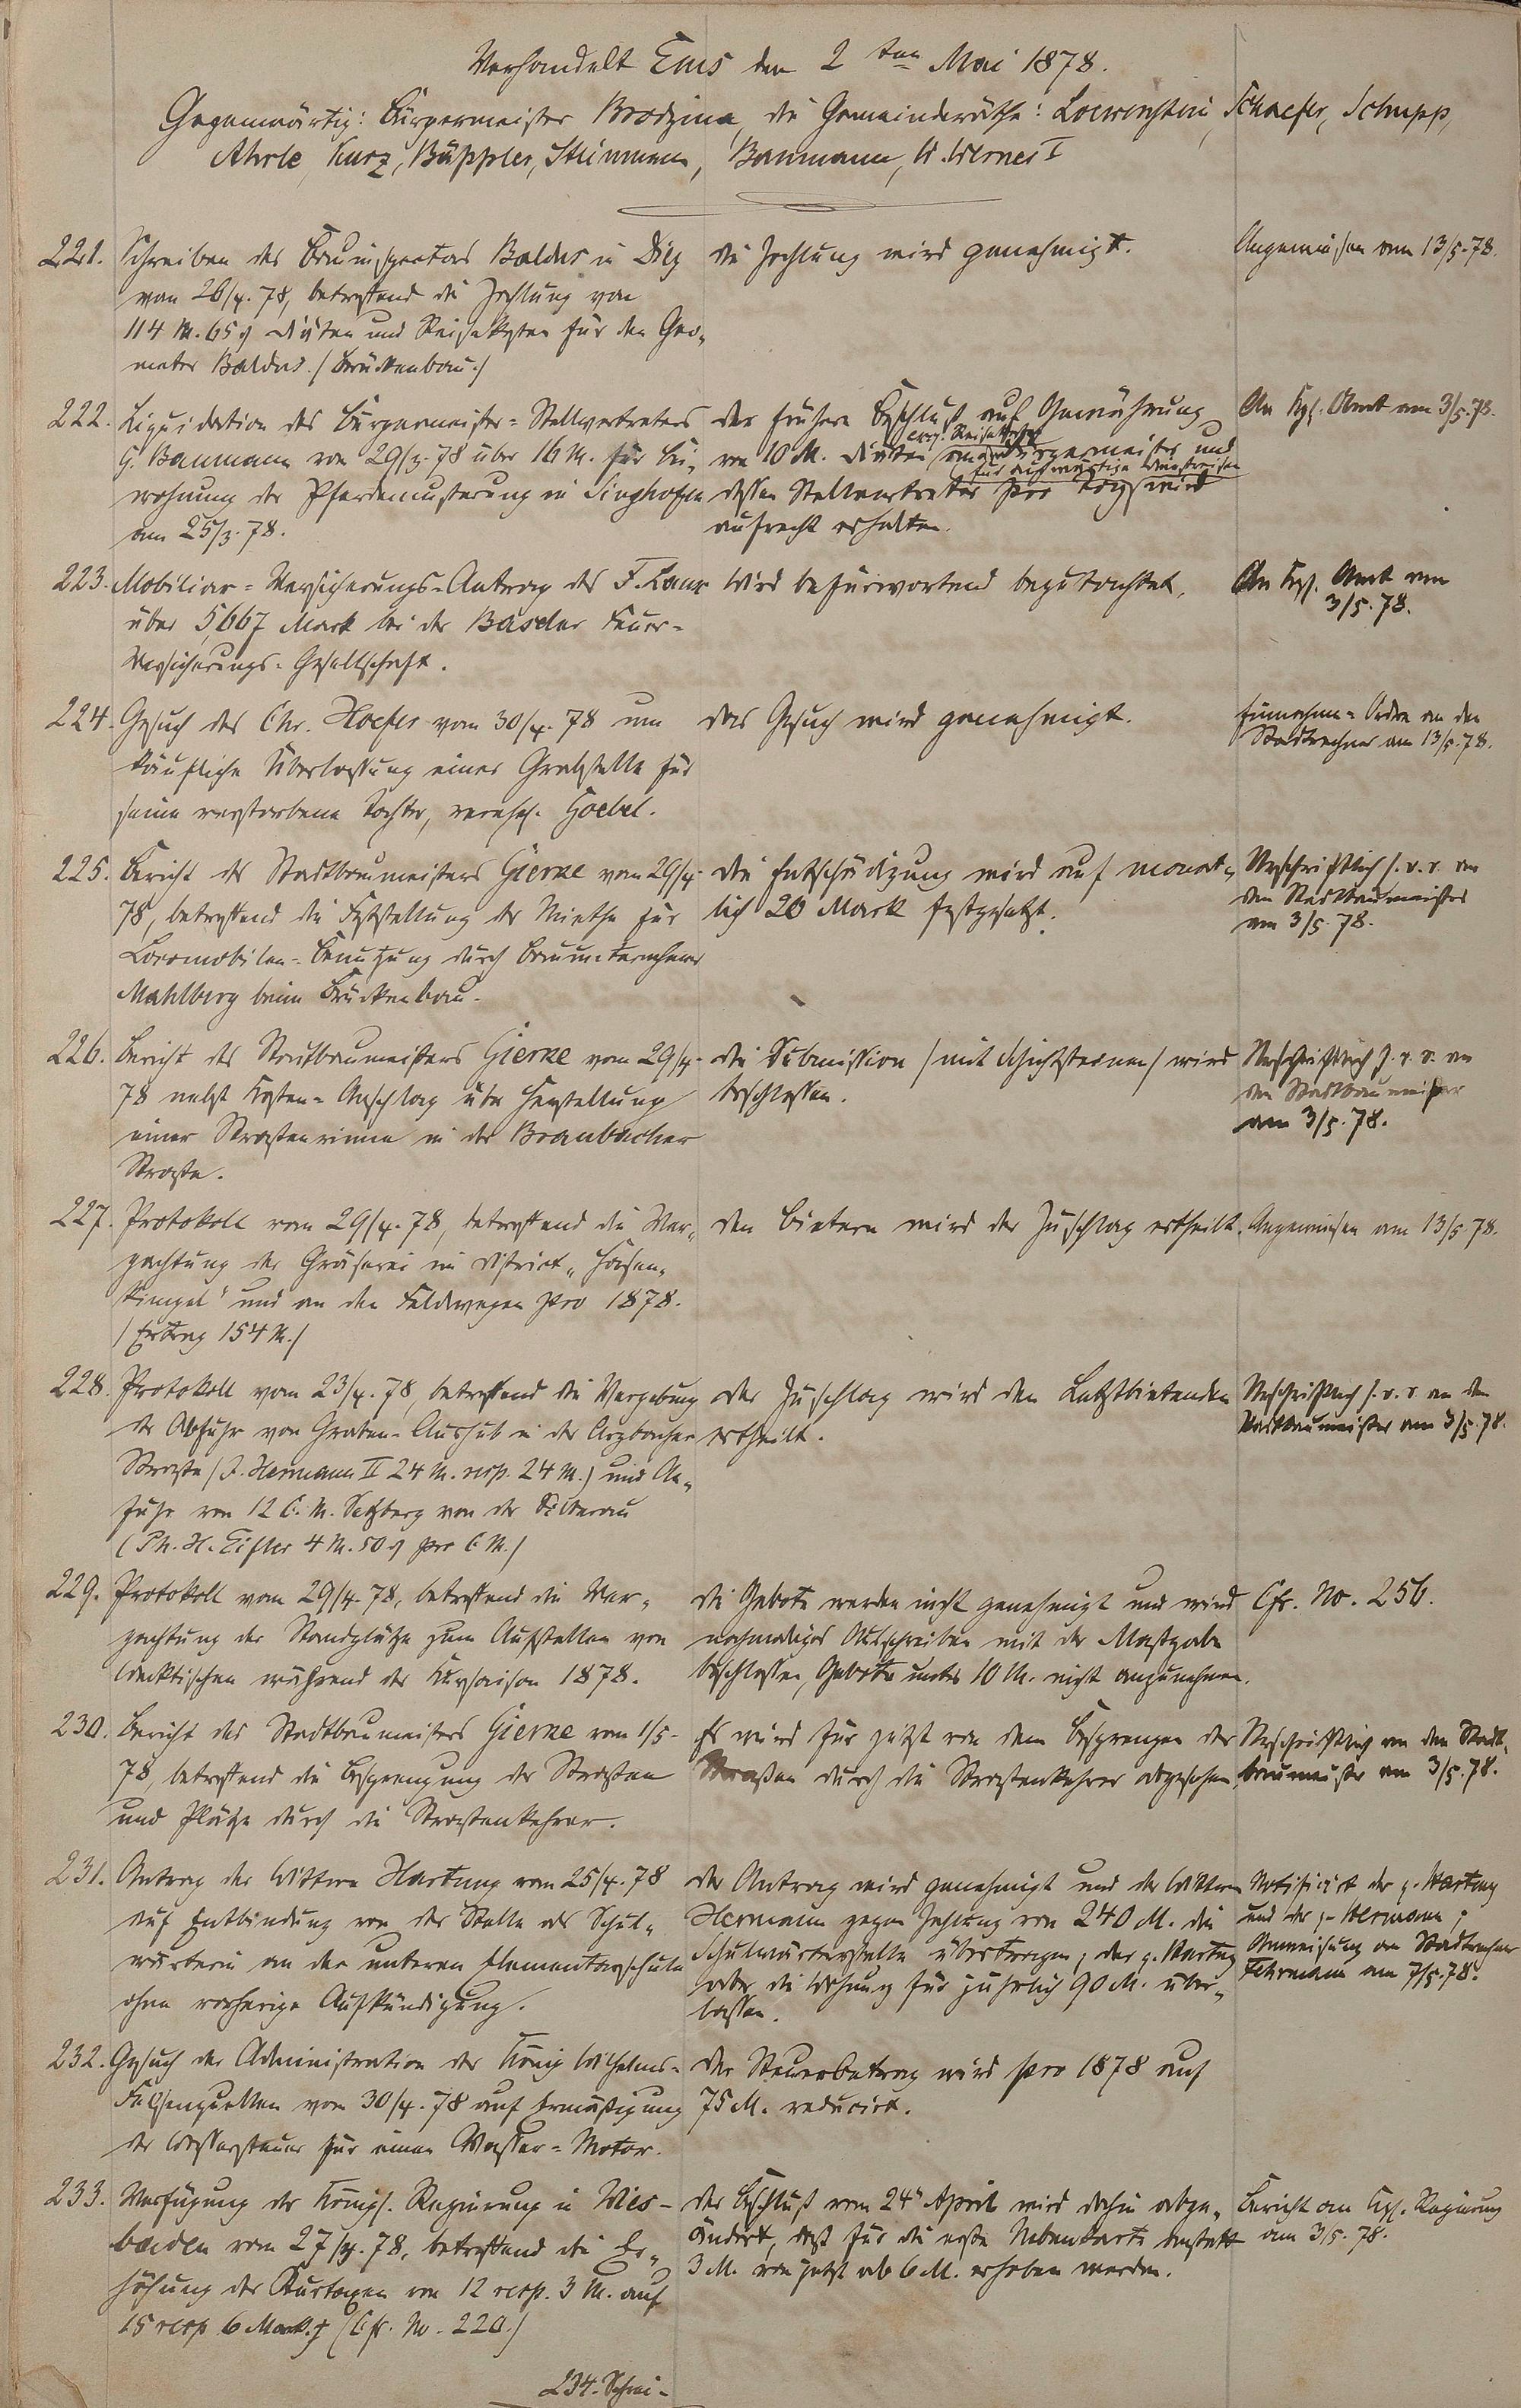 Verhandelt Ems den 2ten Mai 1878.
Gegenwärtig: Bürgermeister Brodzina, die Gemeinderäthe: Loewenstein, Schaefer, Schupp,
Ahrle, Kurz, Büppler, Baumann, W. Werner I
221. Schreiben des Bauinspectors Baldus in Diez
von 26/4. 78, betreffend die Zahlung von
114 M. 65 ₰ Diäten und Reisekosten für den Geo-
meter Baldus. (Brückenbau.)
die Zahlung wird genehmigt.
Angewiesen am 13/5.78.
222. Liquidation des Bürgermeister=Stellvertreters
G. Baumann vom 29/3.78 über 16 M. für Bei-
wohnung der Pferdemusterung in Singhofen
am 25/3. 78.
der frühere Beschluß auf Gewährung
excl. Reisekosten
von 10 M. Diäten Bürgermeister und
für auswärtige Dienstreisen
dessen Stellvertreter pro Tag wird
aufrecht erhalten.
An Kgl. Amt am 3/5.78.
223. Mobiliar=Versicherungs=Antrag des F. Laux
über 5,667 Mark bei der Baseler Feuer=
Versicherungs=Gesellschaft.
Wird befürwortend begutachtet.
An Kgl. Amt am
3/5. 78.
224. Gesuch des Chr. Hoefer vom 30/4. 78 um
käufliche Überlassung einer Grabstelle für
seine verstorbene Tochter, verehel. Goebel.
das Gesuch wird genehmigt.
Einnahme=Ordre an den
Stadtrechner am 13/5.78.
225. Bericht des Stadtbaumeisters Gierke vom 29/4.
78, betreffend die Feststellung der Miethe für
Locomobilen=Benutzung durch Bauunternehmer
Mahlberg beim Brückenbau.
die Entschädigung wird auf monat-
lich 20 Mark festgesetzt.
Urschriftlich s. v. r. an
den Stadtbaumeister
am 3/5. 78.
226. Bericht des Stadtbaumeisters Gierke vom 29/4.
78 nebst Kosten=Anschlag über Herstellung
einer Straßenrinne in der Braubacher
Straße.
die Submission (mit Schichtsteinen) wird
beschlossen.
Urschriftlich s. v. r. an
den Stadtbaumeister
am 3/5. 78.
227. Protokoll vom 29/4. 78, betreffend die Ver-
pachtung der Gräserei im District „Hasen-
kümpel“ und an den Feldwegen pro 1878.
(Ertrag 154 M.)
den Bietern wird der Zuschlag ertheilt.
Angewiesen am 13/5.78.
228. Protokoll vom 23/4. 78, betreffend die Vergebung
der Abfuhr von Graben=Aushub in der Arzbacher
Straße (J. Hermann II 24 M. resp. 24 M.) und An-
fuhr von 12 C. M. Setzberg von der Silberau
(Ph. H. Eifler 4 M. 50 ₰ pro C. M.)
der Zuschlag wird den Letztbietenden
ertheilt.
Urschriftlich s. v. r an den
Stadtbaumeister am 3/5.78.
229. Protokoll vom 29/4. 78, betreffend die Ver-
pachtung der Standplätze zum Aufstellen von
Wecktischen während der Kursaison 1878.
die Gebote werden nicht genehmigt und wird
nochmaliges Ausschreiben mit der Maßgabe
beschlossen, Gebote unter 10 M. nicht anzunehmen.
Cfr. No. 256.
230. Bericht des Stadtbaumeisters Gierke vom 1/5.
78, betreffend die Besprengung der Straßen
und Plätze durch die Straßenkehrer.
Es wird für jetzt von dem Besprengen der
Straßen durch die Straßenkehrer abgesehen.
Urschriftlich an den Stadt-
baumeister am 3/5.78.
231. Antrag der Wittwe Hartung vom 25/4. 78
auf Entbindung von der Stelle als Schul-
wärterin an der unteren Elementarschule
ohne vorherige Aufkündigung.
der Antrag wird genehmigt und der Wittwe
Hermann gegen Zahlung von 240 M. die
Schulwärterstelle übertragen; der p. Hartung
aber die Wohnung für jährlich 90 M. über-
lassen.
Notificirt der p. Hartung
und der p. Hermann;
Anweisung an Stadtrechner
Fehrmann am 7/5.78.
232. Gesuch der Administration der König Wilhelms=
Felsenquellen vom 30/4. 78 auf Ermäßigung
der Wassersteuer für einen Wasser=Motor.
der Steuerbetrag wird pro 1878 auf
75 M. reducirt.
233. Verfügung der Königl. Regierung in Wies-
baden vom 27/4. 78, betreffend die Er-
höhung der Kurtaxen von 12 resp. 3 M. auf
15 resp 6 Mark. (Cfr. No. 220.)
der Beschluß vom 24n April wird dahin abge-
ändert, daß für die erste Nebenkarte anstatt
3 M. von jetzt ab 6 M. erhoben werden.
Bericht an Kgl. Regierung
am 3/5. 78.
234. Schrei-